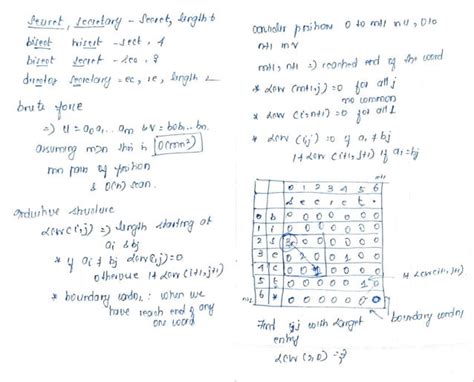 secret, secretary - secret, length 6
bisect trisect - sect, 4
bisect secret - sec, 3
director secretary = ec, re, length 2
brute force
=) u = a0 a1 ... am & v = b0 b1 ... bn
assuming m>n this is O(mn²)
mn pair of position
& O(n) scan.
inductive structure
LCW(i,j) => length starting at
ai & bj
* if ai ≠ bj LCW(i,j)=0
otherwise 1+LCW(i+1,j+1)
* boundary condn : when we
have reach end of any
one word
consider positions 0 to m+1 in u, 0 to
n+1 in v
m+1, n+1 => reached end of the word
* LCW (m+1,j)=0 for all j
no common
* LCW (i,n+1)=0 for all i
* LCW (i,j) =0 if ai ≠ bj
1+LCW (i+1,j+1) if ai=bj
0 1 2 3 4 5 6
s e c r e t .
0 b 0 0 0 0 0 0 0
1 i 0 0 0 0 0 0 0
2 s 3 0 0 0 0 0 0
3 e 0 2 0 0 1 0 0
4 c 0 0 1 0 0 0 0
5 t 0 0 0 0 0 1 0
6 * 0 0 0 0 0 0 0
1+LCW(i+1,j+1)
boundary condn
Find i,j with largest
entry
LCW (2,0) = 3